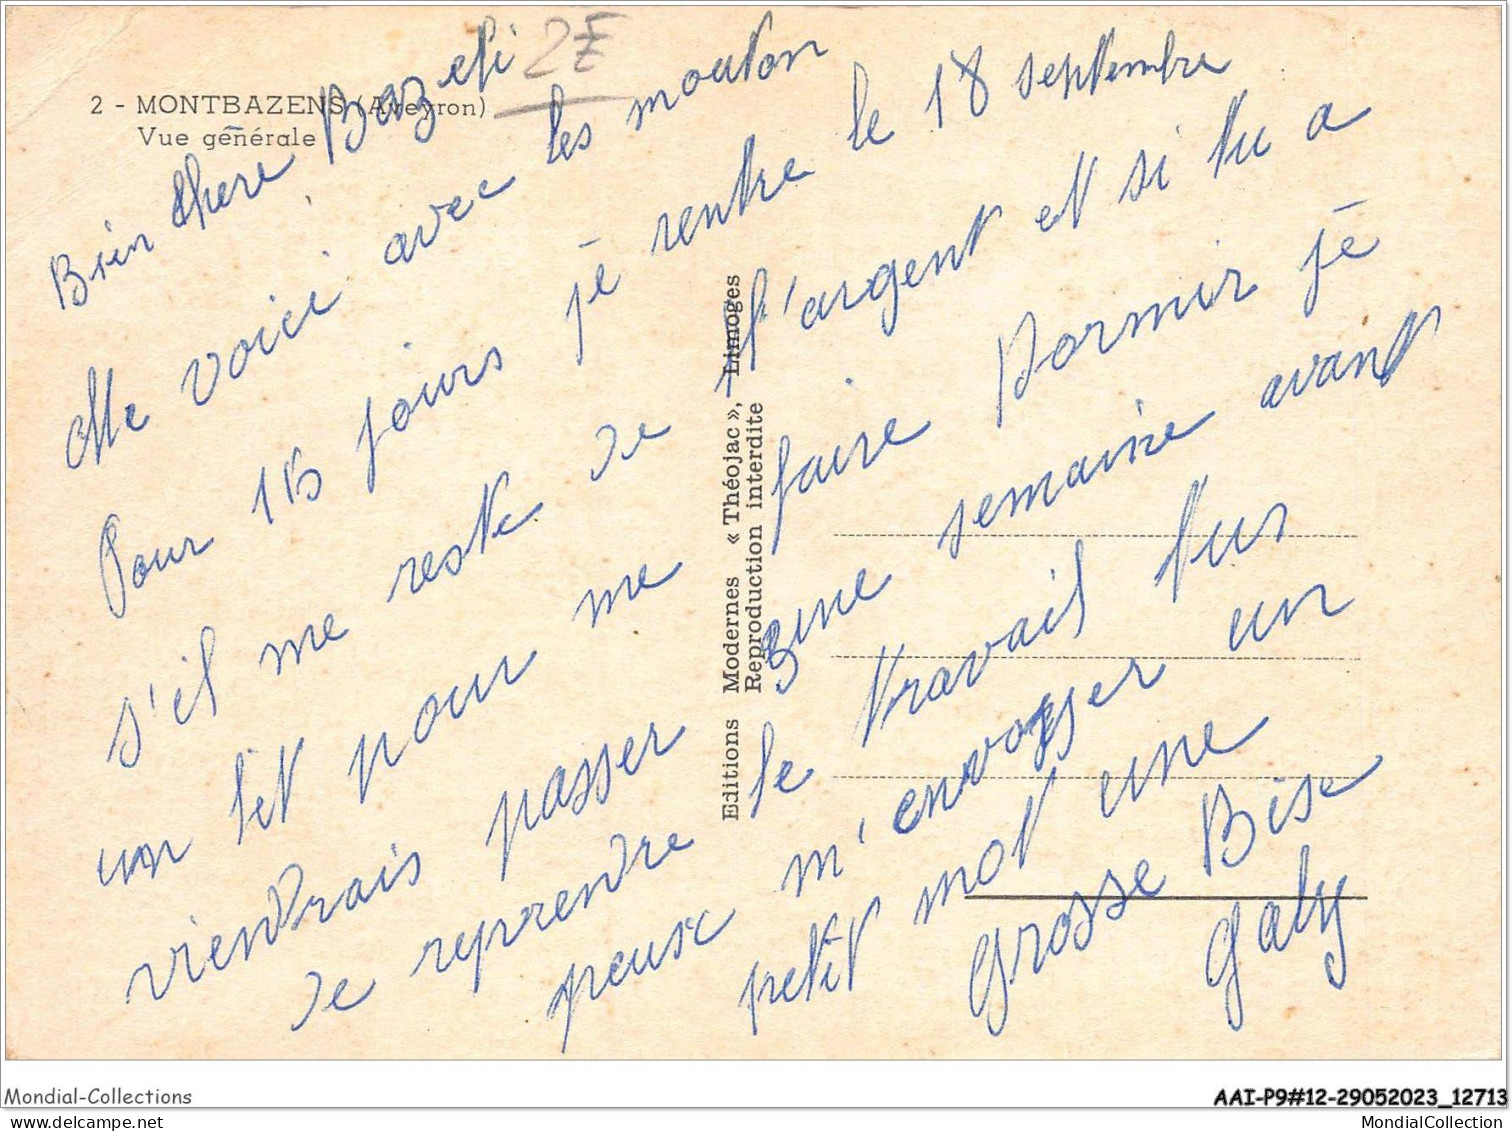 2 - MONTBAZENS (Aveyron)
Vue générale
2F
Bien chere Bazeti
Me voici avec les mouton
Pour 15 jours je rentre le 18 septembre
s'il me reste de l'argent et si tu a
un lit pour me faire Dormir je
viendrais passer une semaine avant
de reprendre le travail tus
peuse m'envoyser un
petit mot une
grosse Bise
galy
Editions Modernes « Théojac », Limoges
Reproduction interdite
Mondial-Collections
AAI-P9#12-29052023_12713
MondialCollection